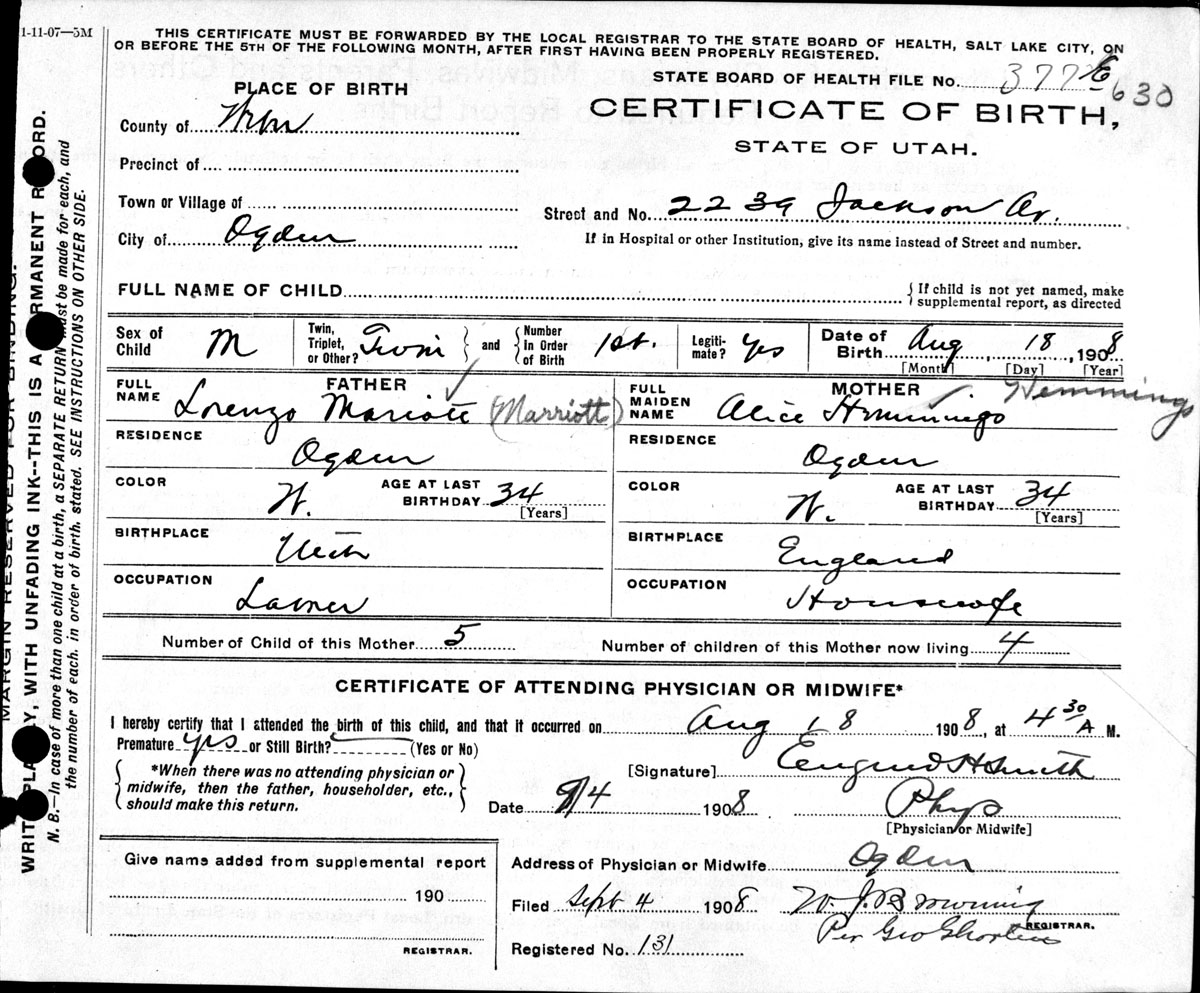 1-11-07—5M
THIS CERTIFICATE MUST BE FORWARDED BY THE LOCAL REGISTRAR TO THE STATE BOARD OF HEALTH, SALT LAKE CITY, ON
OR BEFORE THE 5TH OF THE FOLLOWING MONTH, AFTER FIRST HAVING BEEN PROPERLY REGISTERED.
STATE BOARD OF HEALTH FILE No. 377 630
PLACE OF BIRTH
CERTIFICATE OF BIRTH,
STATE OF UTAH.
County of
Precinct of
Town or Village of
Street and No. 2239 Jackson Av.
City of Ogden
If in Hospital or other Institution, give its name instead of Street and number.
FULL NAME OF CHILD
{If child is not yet named, make
supplemental report, as directed
Sex of Child M
Twin, Triplet, or Other? Twin
and
Number in Order of Birth 1st.
Legiti-mate? yes
Date of Birth Aug 18, 1908
[Month] [Day] [Year]
FATHER
FULL NAME Lorenzo Mariott (Marriott)
MOTHER
FULL MAIDEN NAME Alice Hemmings Hemmings
RESIDENCE Ogden
RESIDENCE Ogden
COLOR W.
AGE AT LAST BIRTHDAY 34
[Years]
COLOR W.
AGE AT LAST BIRTHDAY 34
[Years]
BIRTHPLACE Utah
BIRTHPLACE England
OCCUPATION
OCCUPATION Housewife
Number of Child of this Mother 5
Number of children of this Mother now living 4
CERTIFICATE OF ATTENDING PHYSICIAN OR MIDWIFE*
I hereby certify that I attended the birth of this child, and that it occurred on Aug 18 1908, at 4 30 A M.
Premature yes or Still Birth? (Yes or No)
*When there was no attending physician or
midwife, then the father, householder, etc.,
should make this return.
[Signature] H Smith
Date 9/4 1908
Phys
[Physician or Midwife]
Give name added from supplemental report
190
REGISTRAR.
Address of Physician or Midwife Ogden
Filed Sept 4 1908 W. J. Browning
Per Geo
REGISTRAR.
Registered No. 131
MARGIN RESERVED FOR BINDING.
WRITE PLAINLY, WITH UNFADING INK--THIS IS A PERMANENT RECORD.
N. B.—In case of more than one child at a birth, a SEPARATE RETURN must be made for each, and
the number of each, in order of birth, stated. SEE INSTRUCTIONS ON OTHER SIDE.